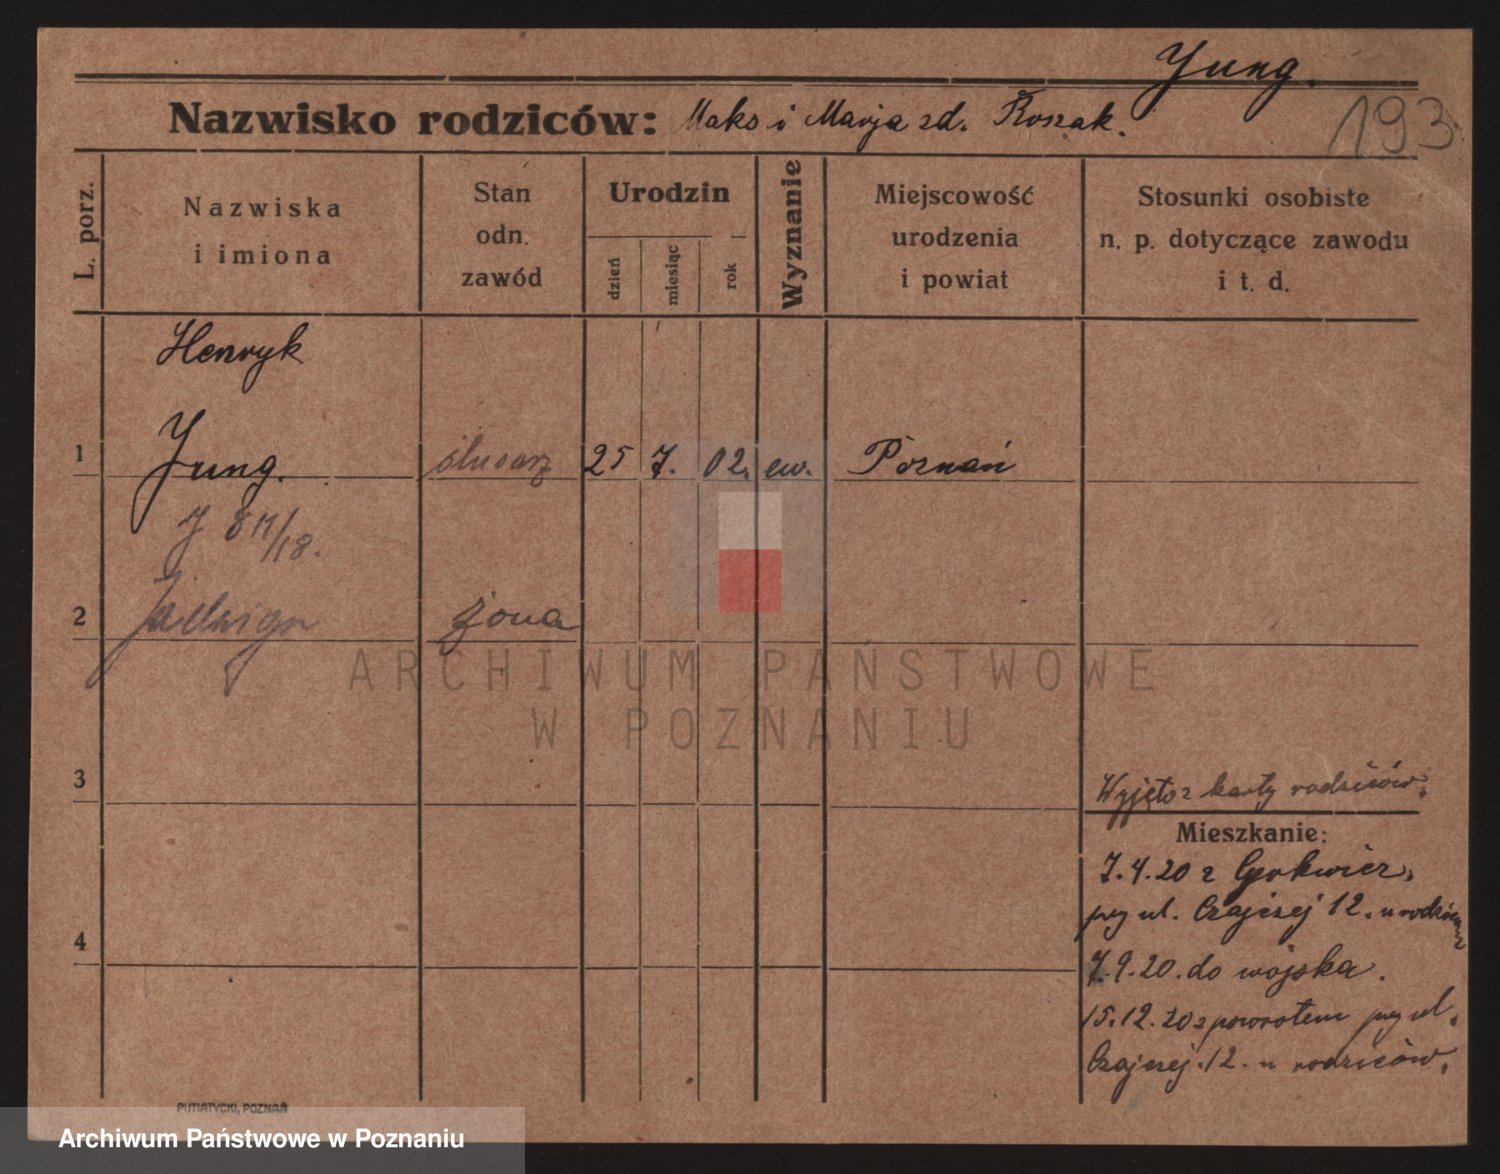 Yung.
193
Nazwisko rodziców: Maks i Marja zd. Roszak.
L. porz.
Nazwiska
i imiona
Stan
odn.
zawód
Urodzin
dzień
miesiąc
rok
Wyznanie
Miejscowość
urodzenia
i powiat
Stosunki osobiste
n. p. dotyczące zawodu
i t. d.
Henryk
1 Yung. ślusarz 25 7. 02. ew. Poznań
2 Jadwiga żona
ARCHIWUM PAŃSTWOWE
W POZNANIU
3
Wyjęto z karty rodziców.
Mieszkanie:
7.4.20 z
przy ul. Czajczej 12. u rodziców
4
7.9.20. do wojska.
15.12.20 z powrotem przy ul.
Czajczej 12. u rodziców.
PUTIATYCKI, POZNAŃ
Archiwum Państwowe w Poznaniu